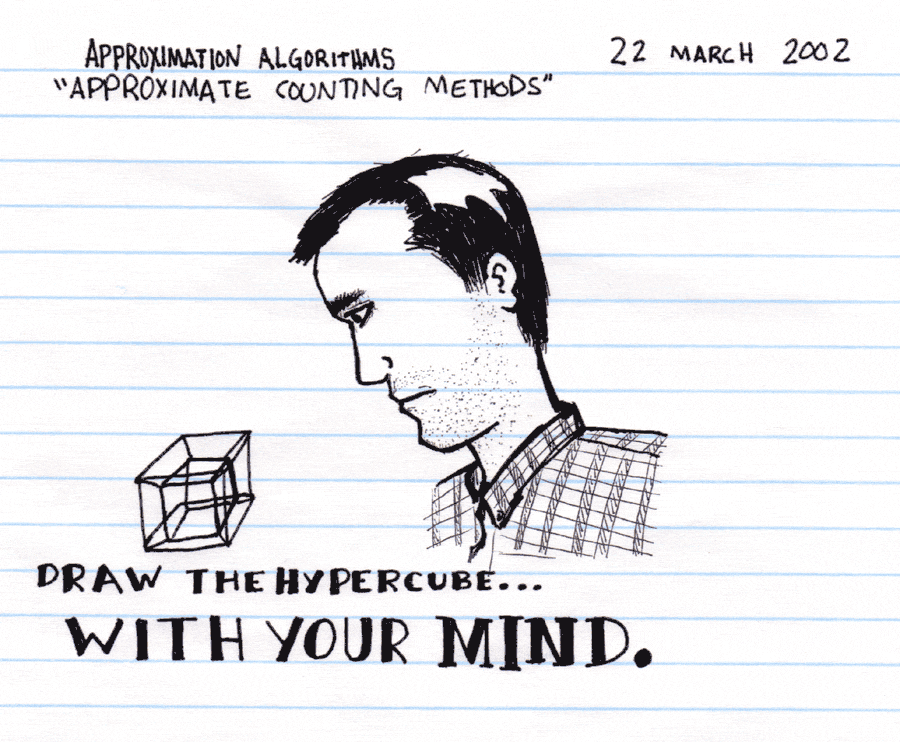 APPROXIMATION ALGORITHMS 22 MARCH 2002
"APPROXIMATE COUNTING METHODS"
DRAW THE HYPERCUBE...
WITH YOUR MIND.